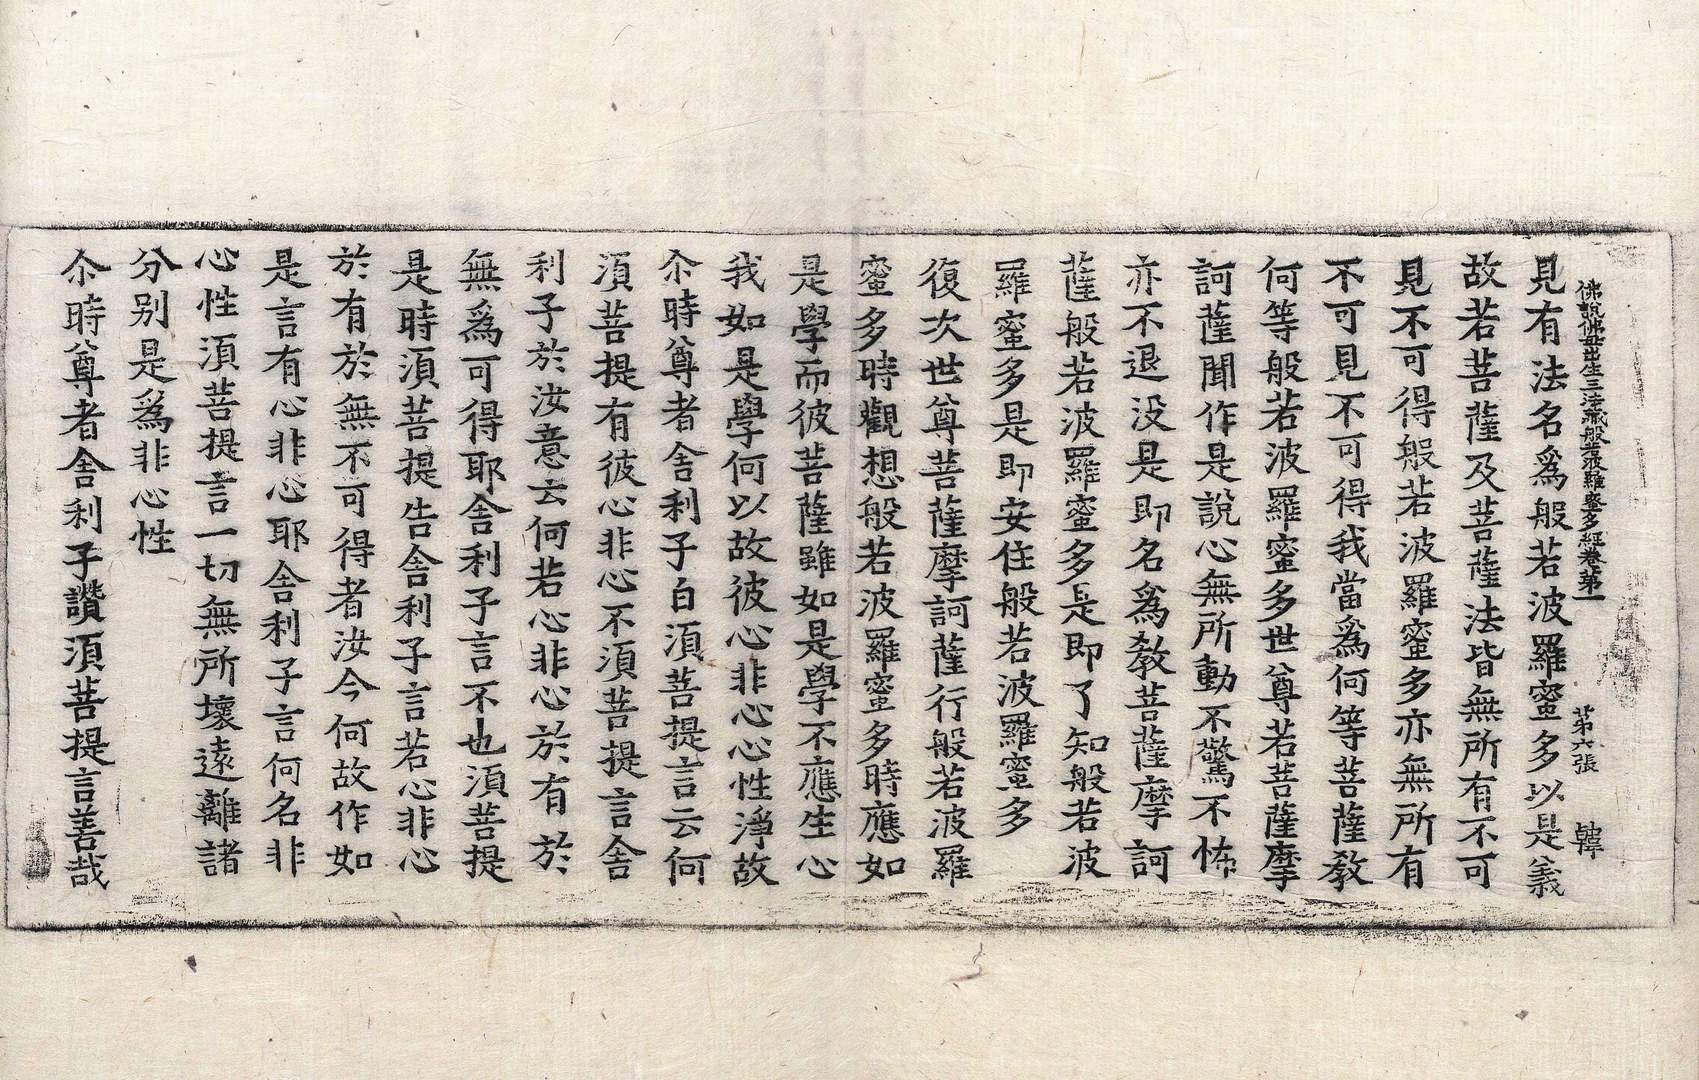 佛說佛母出生三法藏般若波羅蜜多經卷第一 第六張 韓
見有法名爲般若波羅蜜多以是義
故若菩薩及菩薩法皆無所有不可
見不可得般若波羅蜜多亦無所有
不可見不可得我當爲何等菩薩教
何等般若波羅蜜多世尊若菩薩摩
訶薩聞作是說心無所動不驚不怖
亦不退没是即名爲教菩薩摩訶
薩般若波羅蜜多是即了知般若波
羅蜜多是即安住般若波羅蜜多
復次世尊菩薩摩訶薩行般若波羅
蜜多時觀想般若波羅蜜多時應如
是學而彼菩薩雖如是學不應生心
我如是學何以故彼心非心心性淨故
尒時尊者舍利子白須菩提言云何
須菩提有彼心非心不須菩提言舍
利子於汝意云何若心非心於有於
無爲可得耶舍利子言不也須菩提
是時須菩提告舍利子言若心非心
於有於無不可得者汝今何故作如
是言有心非心耶舍利子言何名非
心性須菩提言一切無所壞遠離諸
分别是爲非心性
尒時尊者舍利子讚須菩提言善哉